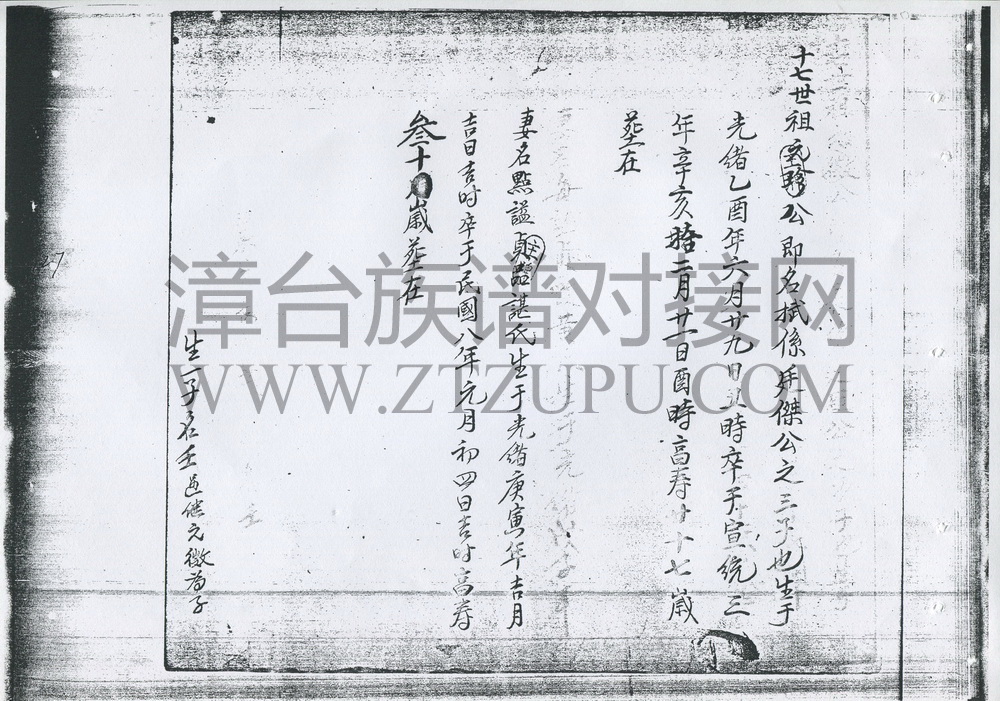 十七世祖元公即名拭係廷傑公之三子也生于
光緒乙酉年六月廿九日丑時卒于宣統三
年辛亥拾二月廿一日酉時高寿廿十七歲
塟在
妻名點謚貞諶氏生于光緒庚寅年吉月
吉日吉时卒于民國八年元月初四日吉时高寿
叁十歲塟在
生一子名壬过继元徽为子
27
漳台族谱对接网
WWW.ZTZUPU.COM